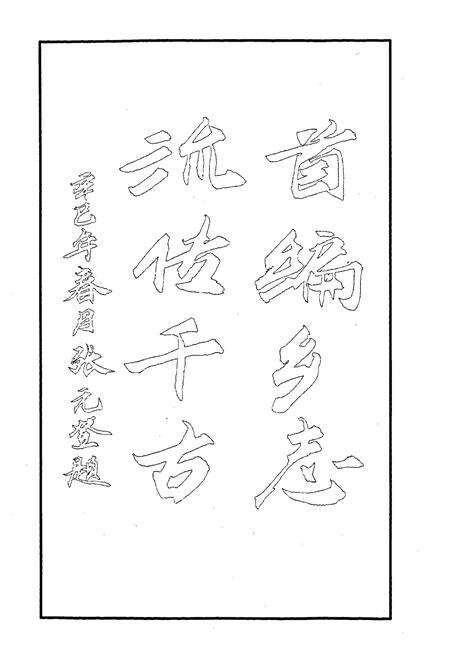 首编乡志
流传千古
辛巳年春月张元登题